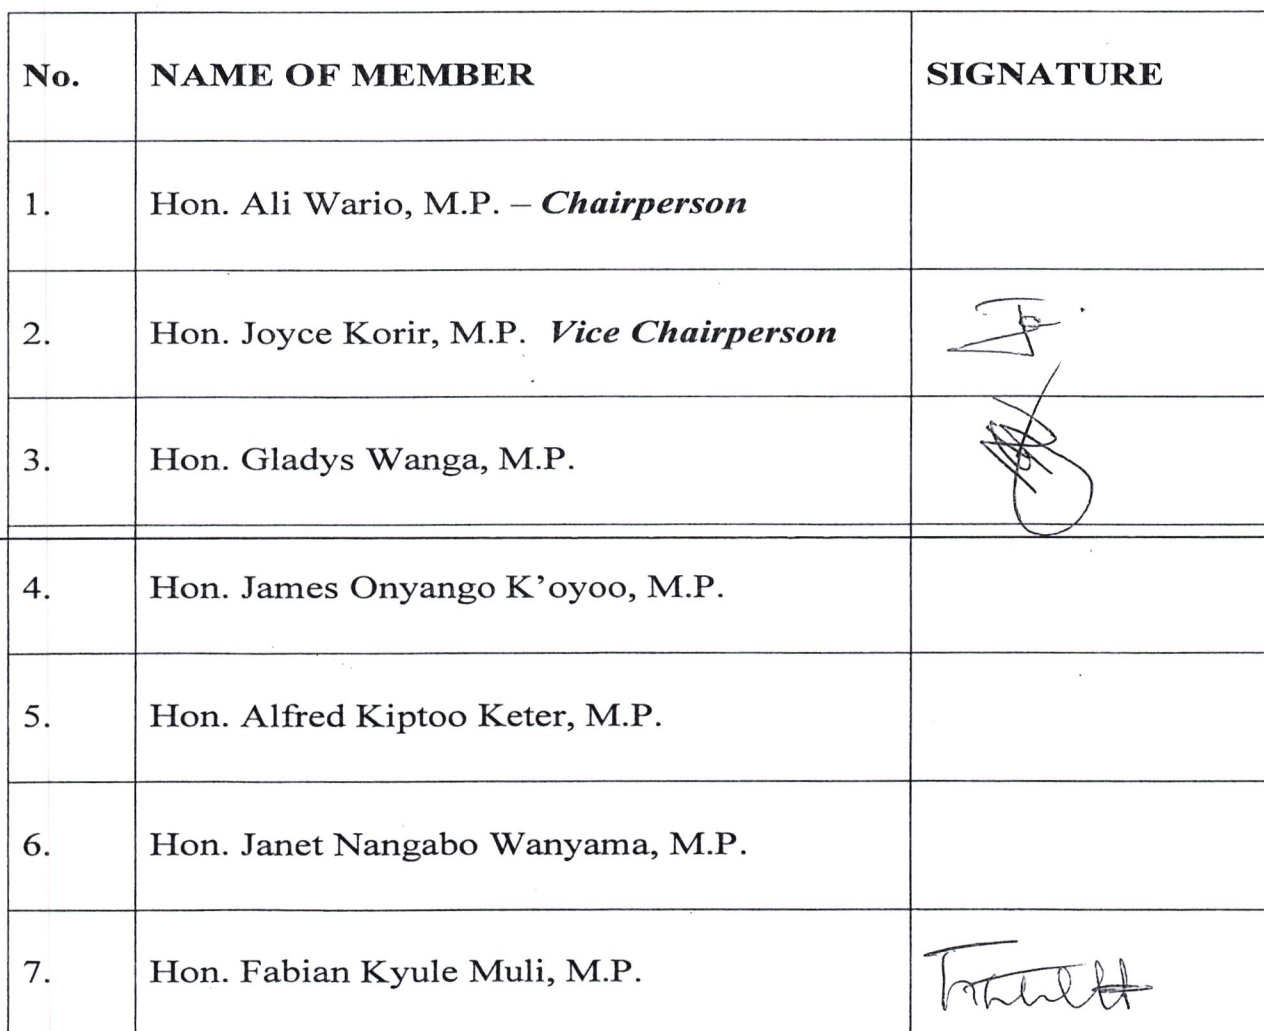 No. NAME OF MEMBER SIGNATURE
1. Hon. Ali Wario, M.P. – Chairperson
2. Hon. Joyce Korir, M.P. Vice Chairperson
3. Hon. Gladys Wanga, M.P.
4. Hon. James Onyango K’oyoo, M.P.
5. Hon. Alfred Kiptoo Keter, M.P.
6. Hon. Janet Nangabo Wanyama, M.P.
7. Hon. Fabian Kyule Muli, M.P.